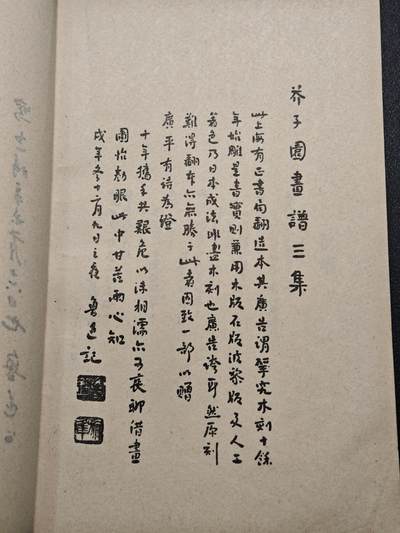 芥子園畫譜三集
此上海有正書局翻造本其廣告謂揅究木刻十餘
年始雕是書實則兼用木版石版波黎版及人工
著色乃日本成法非盡木刻也廣告誇耳然原刻
難得翻本亦無勝于此者因致一部以贈
廣平有詩為證
十年攜手共艱危以沫相濡亦可哀聊借畫
圖怡勌眼此中甘苦兩心知
戌年冬十二月九日之夜 魯迅記